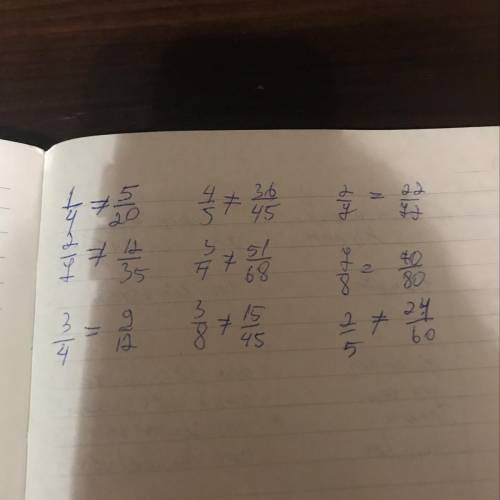 1/4 ≠ 5/20 4/5 ≠ 36/45 2/7 = 22/77
2/7 ≠ 12/35 3/4 ≠ 51/68 7/8 = 70/80
3/4 = 9/12 3/8 ≠ 15/45 2/5 ≠ 24/60